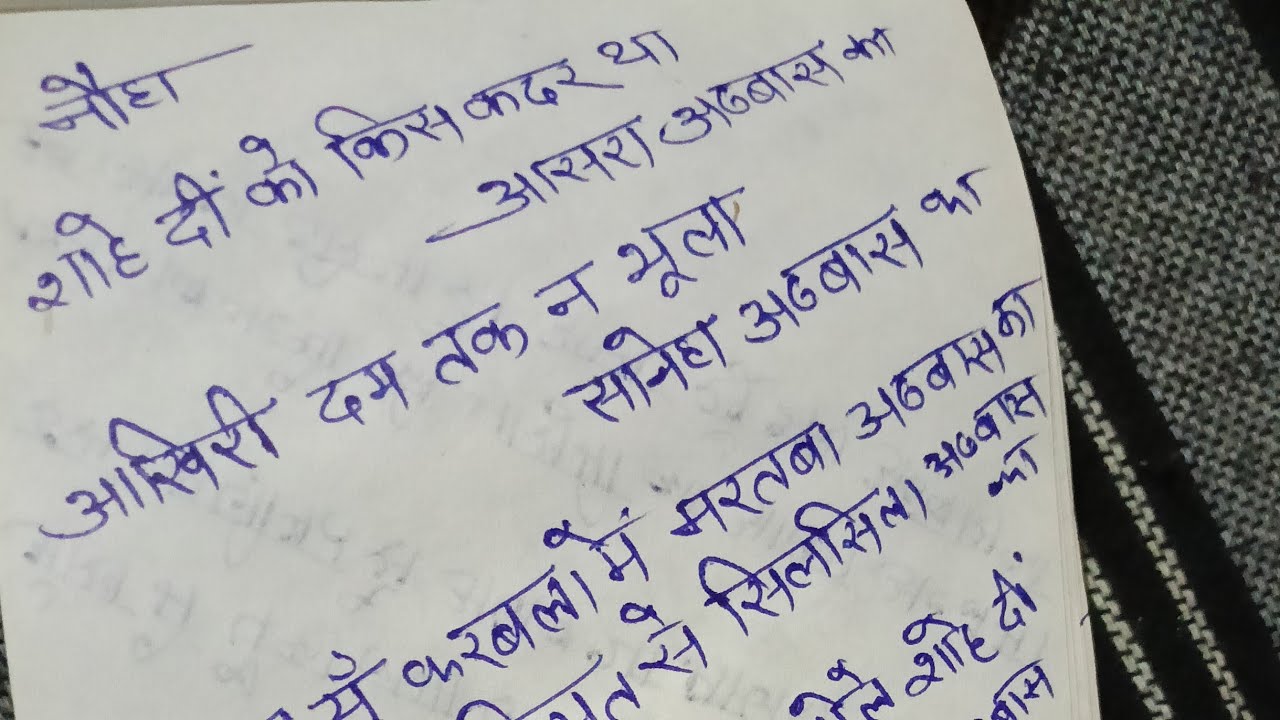 नौहा
शाहे दीं को किस कदर था
आसरा अब्बास का
आखिरी दम तक न भूला
सानेहा अब्बास का
करबला में मरतबा अब्बास का
से सिलसिला अब्बास
का
शाहे दीं